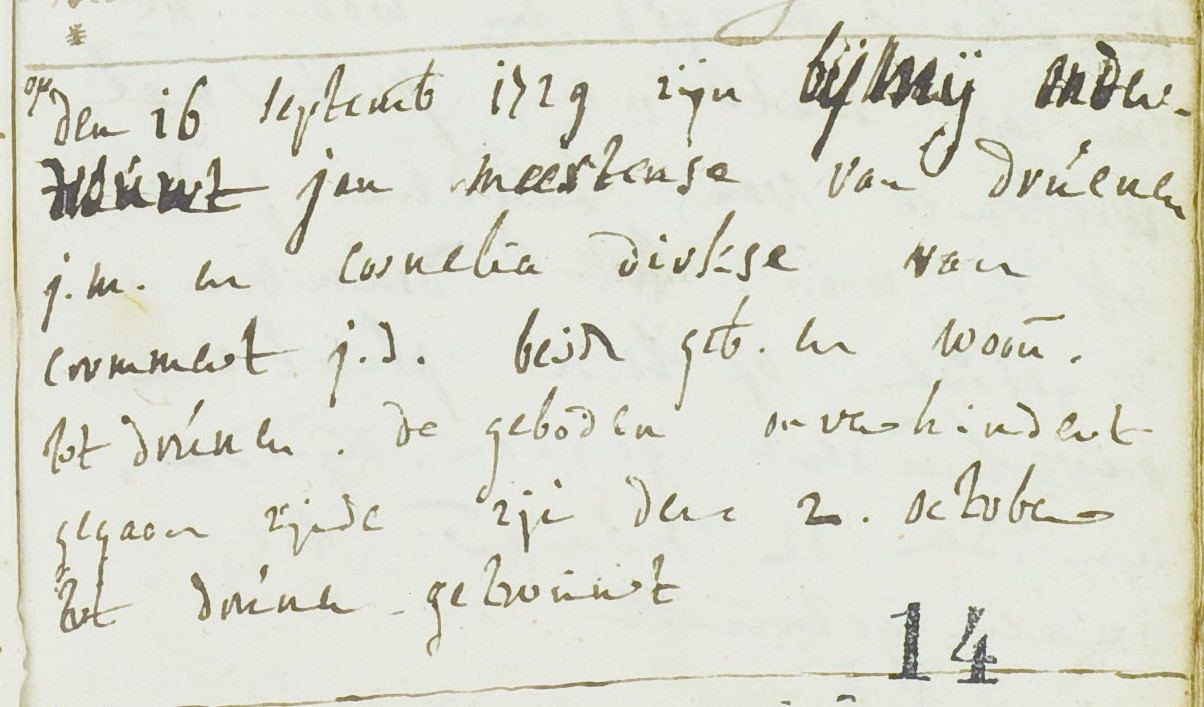 op
den 16 septemb 1729 zijn bij mij onder-
trouwt jan meertense van drúenen
j.m. en cornelia dirkse van
commert j.d. beide geb. en woon.
tot drúnen. de geboden onverhindert
gegaen zijnde zijn den 2. october
tot drúnen getrouwt
14